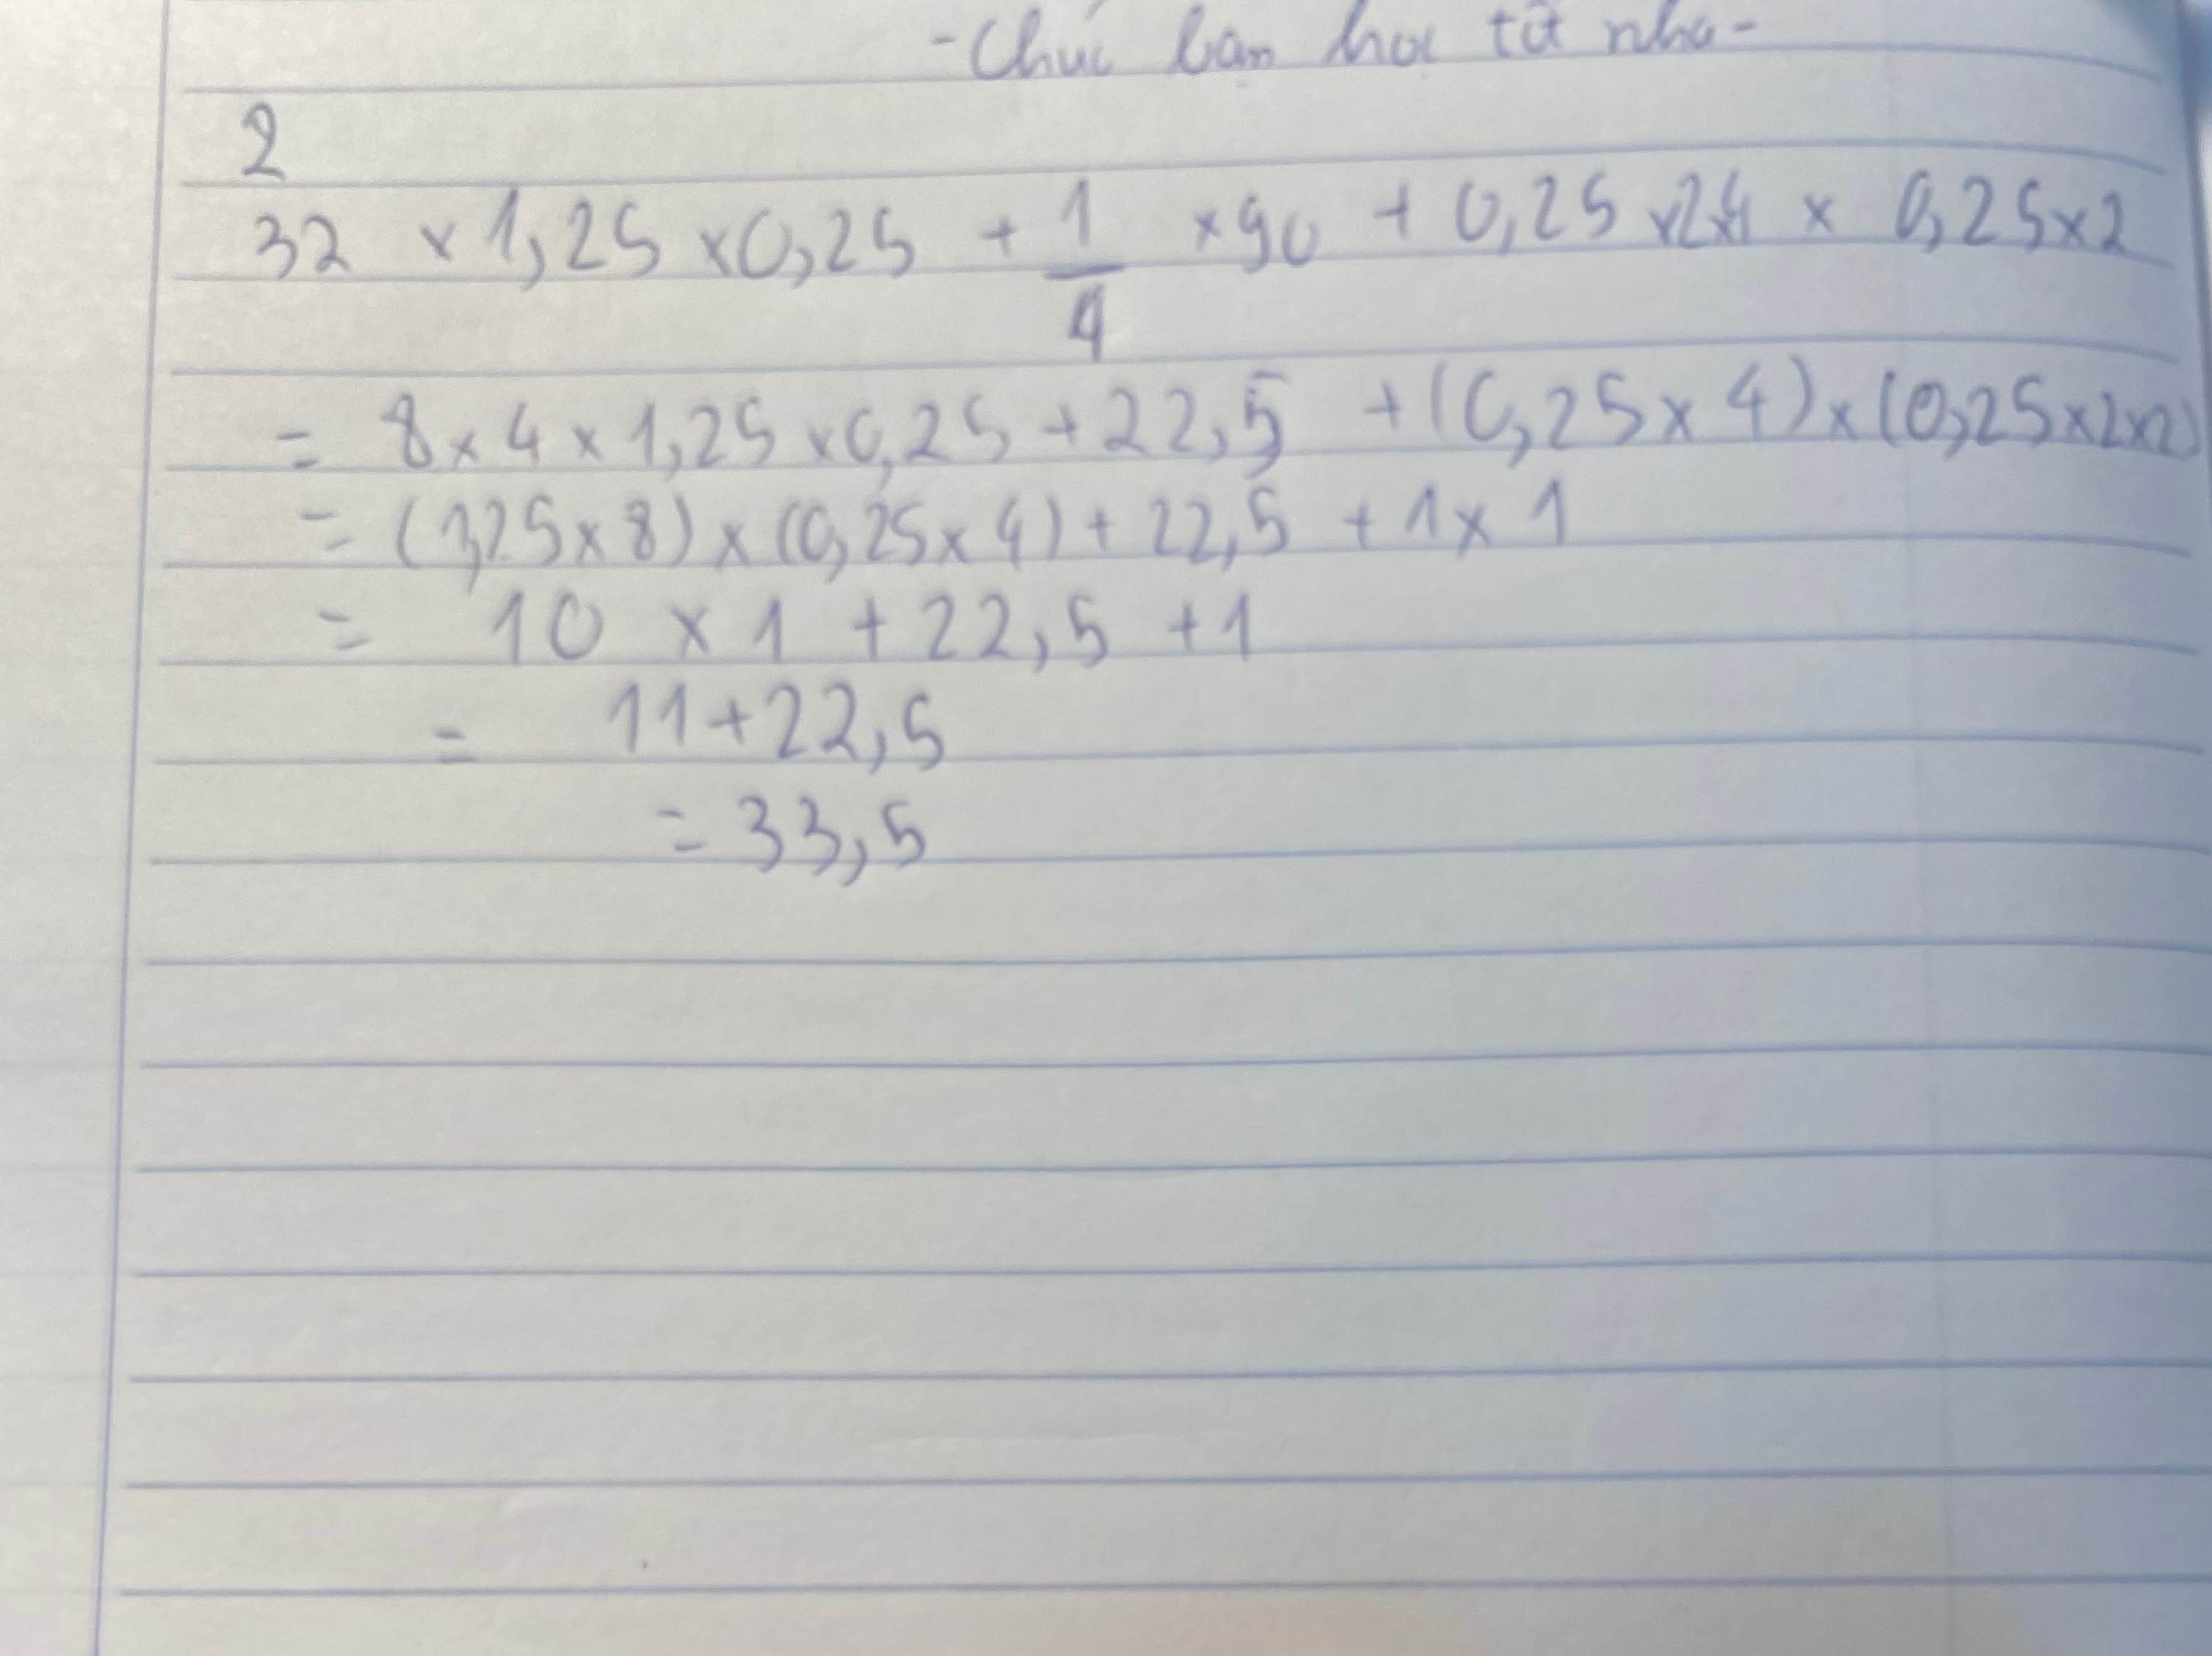 -Chúc bạn học tốt nha-
2
32 × 1,25 × 0,25 + 1/4 × 90 + 0,25 × 2 × 4 × 0,25 × 2
= 8 × 4 × 1,25 × 0,25 + 22,5 + (0,25 × 4) × (0,25 × 2 × 2)
= (1,25 × 8) × (0,25 × 4) + 22,5 + 1 × 1
= 10 × 1 + 22,5 + 1
= 11 + 22,5
= 33,5